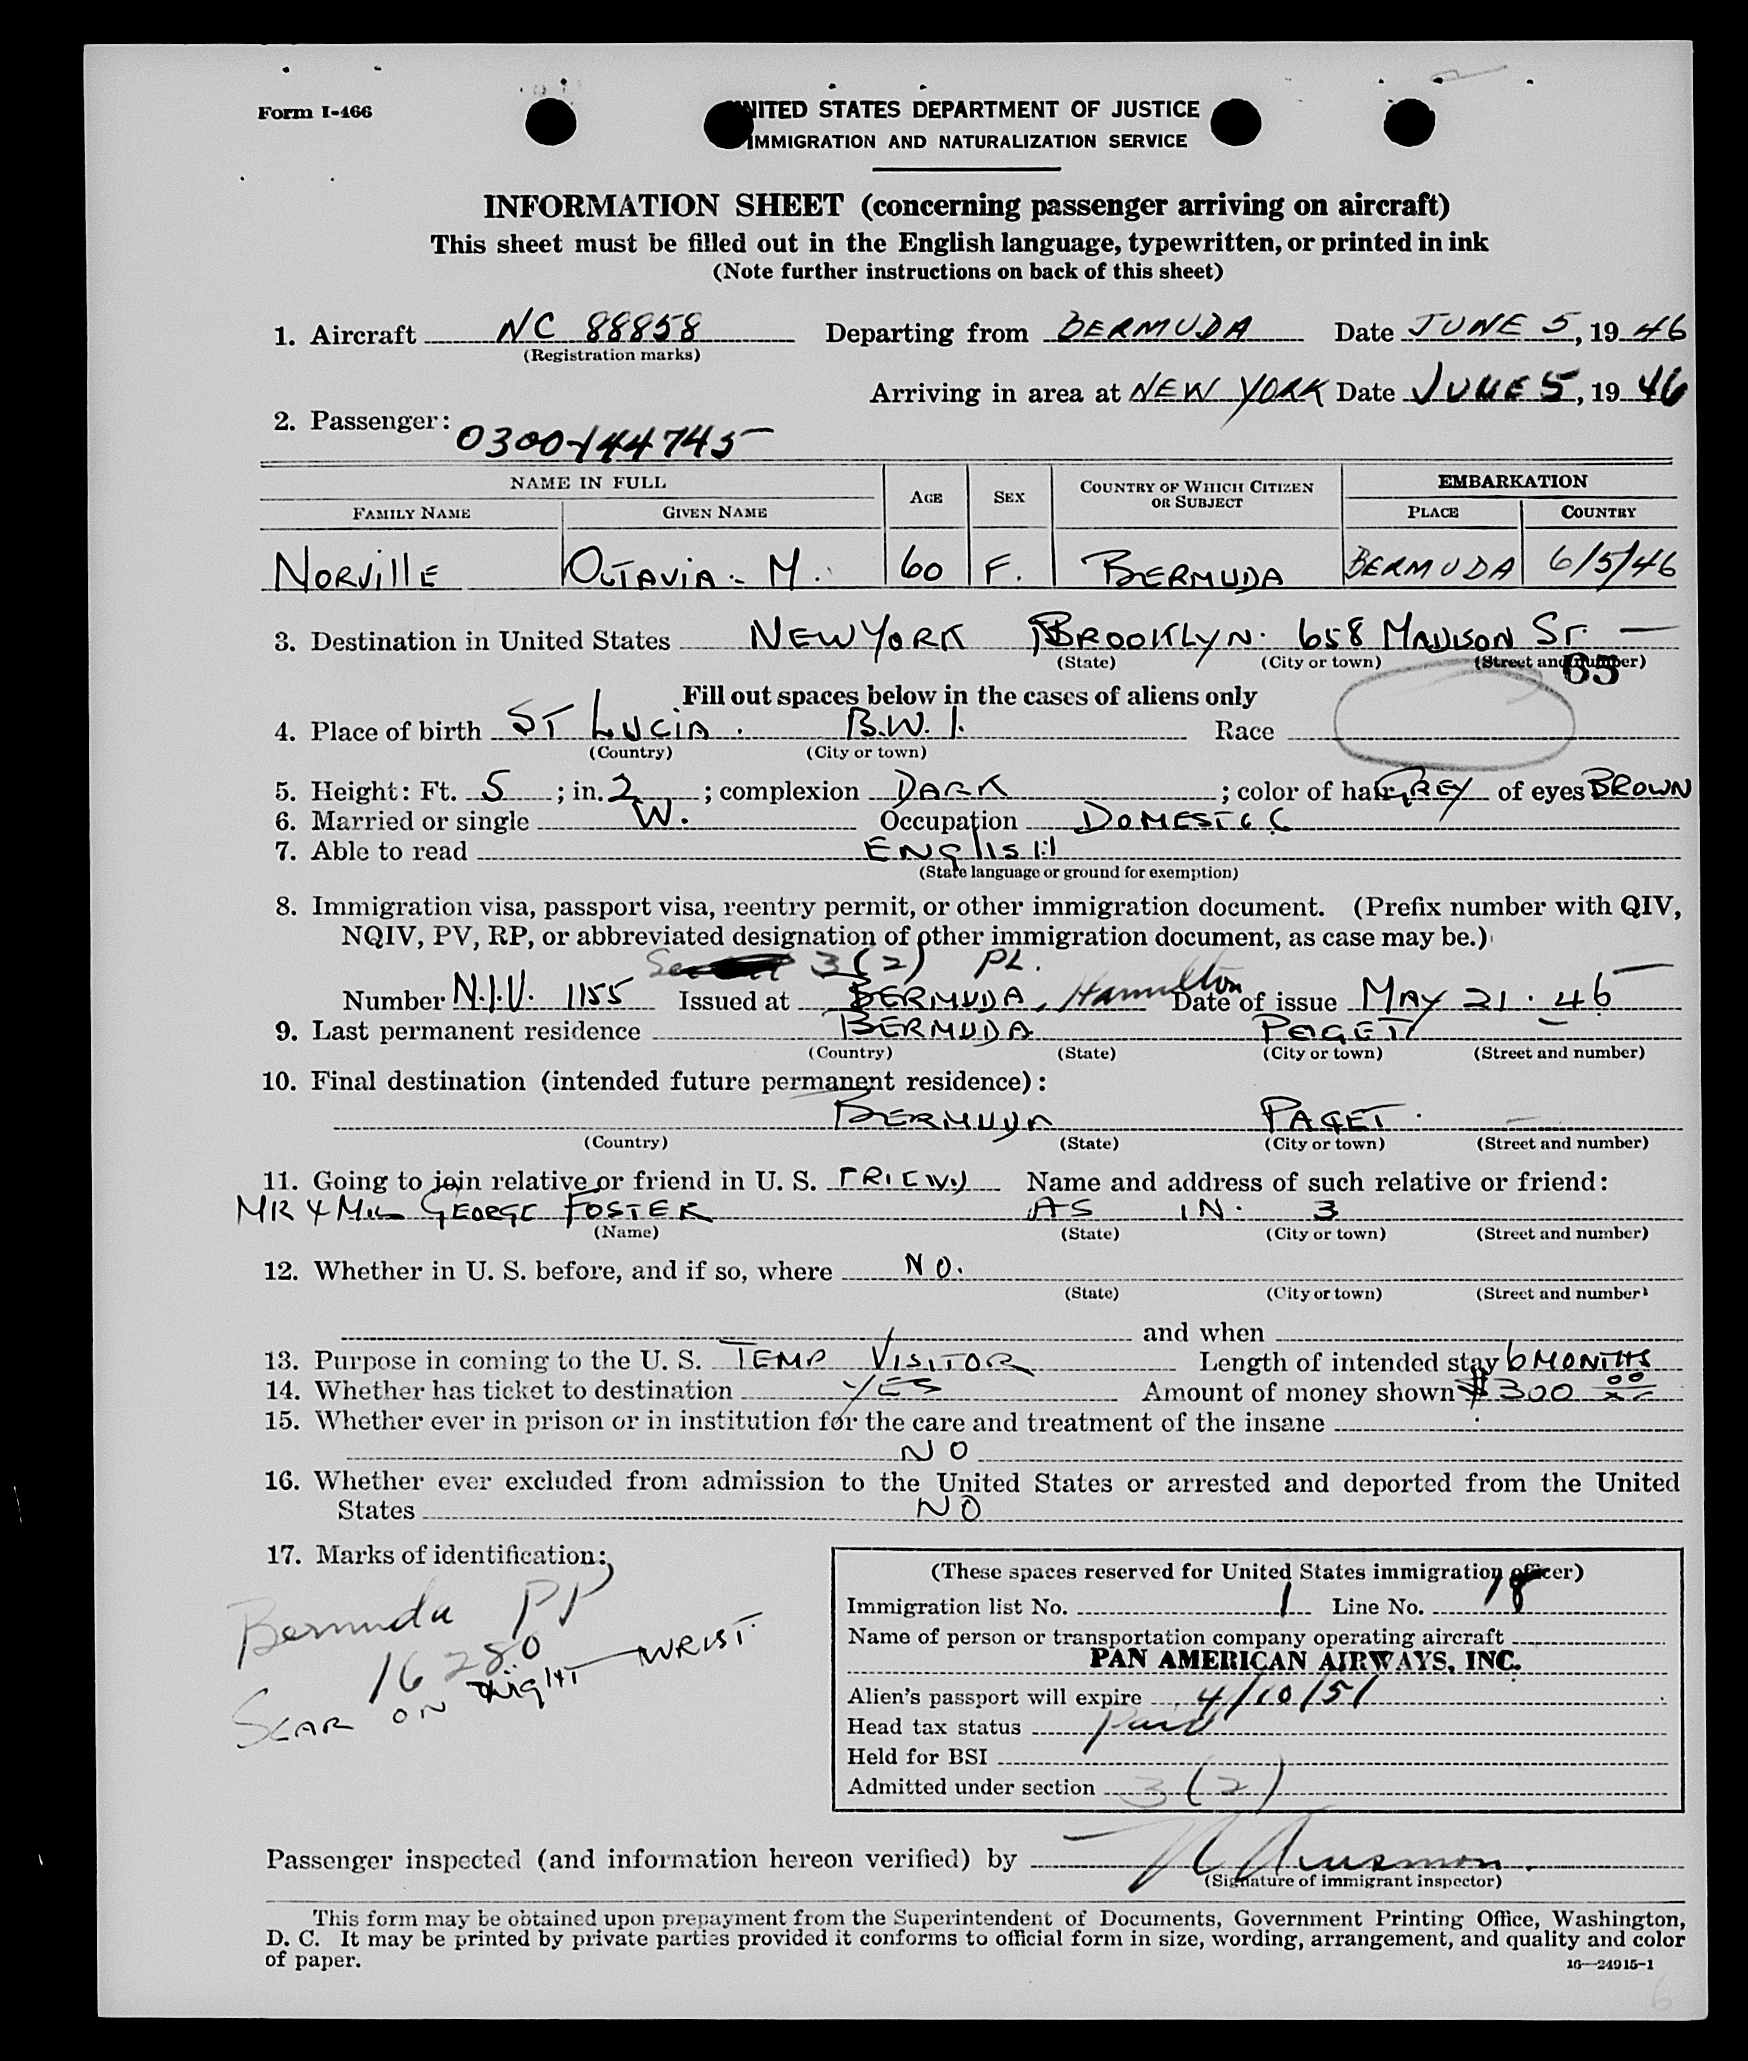 Form I-466
UNITED STATES DEPARTMENT OF JUSTICE
IMMIGRATION AND NATURALIZATION SERVICE
INFORMATION SHEET (concerning passenger arriving on aircraft)
This sheet must be filled out in the English language, typewritten, or printed in ink
(Note further instructions on back of this sheet)
1. Aircraft NC 88858 Departing from BERMUDA Date JUNE 5, 19 46
(Registration marks)
Arriving in area at NEW YORK Date JUNE 5, 19 46
2. Passenger: 0300-144745
NAME IN FULL AGE SEX COUNTRY OF WHICH CITIZEN OR SUBJECT EMBARKATION
FAMILY NAME GIVEN NAME PLACE COUNTRY
NORVIllE OCTAVIA - M. 60 F. BERMUDA BERMUDA 6/5/46
3. Destination in United States NEW YORK BROOKLYN. 658 MADISON ST.
(State) (City or town) (Street and number)
65
Fill out spaces below in the cases of aliens only
4. Place of birth ST LUCIA. B.W.I. Race
(Country) (City or town)
5. Height: Ft. 5; in. 2; complexion DARK; color of hair GREY of eyes BROWN
6. Married or single W. Occupation DOMESTIC
7. Able to read ENGlISH
(State language or ground for exemption)
8. Immigration visa, passport visa, reentry permit, or other immigration document. (Prefix number with QIV,
NQIV, PV, RP, or abbreviated designation of other immigration document, as case may be.)
3(2) PL.
Number N.I.V. 1155 Issued at BERMUDA, Hamilton Date of issue MAY 21. 46
9. Last permanent residence BERMUDA PAGET
(Country) (State) (City or town) (Street and number)
10. Final destination (intended future permanent residence):
BERMUDA PAGET.
(Country) (State) (City or town) (Street and number)
11. Going to join relative or friend in U. S. FRIEND Name and address of such relative or friend:
MR & Mrs GEORGE FOSTER AS IN. 3
(Name) (State) (City or town) (Street and number)
12. Whether in U. S. before, and if so, where NO.
(State) (City or town) (Street and number)
and when
13. Purpose in coming to the U. S. TEMP VISITOR Length of intended stay 6 MONTHS
14. Whether has ticket to destination YES Amount of money shown $300 00/xx
15. Whether ever in prison or in institution for the care and treatment of the insane
NO
16. Whether ever excluded from admission to the United States or arrested and deported from the United
States NO
17. Marks of identification:
Bermuda PP
16280
SCAR ON RIGHT WRIST.
(These spaces reserved for United States immigration officer)
Immigration list No. 1 Line No. 18
Name of person or transportation company operating aircraft
PAN AMERICAN AIRWAYS, INC.
Alien's passport will expire 4/10/51
Head tax status Paid
Held for BSI
Admitted under section 3(2)
Passenger inspected (and information hereon verified) by
(Signature of immigrant inspector)
This form may be obtained upon prepayment from the Superintendent of Documents, Government Printing Office, Washington,
D. C. It may be printed by private parties provided it conforms to official form in size, wording, arrangement, and quality and color
of paper.
16—24915-1
6